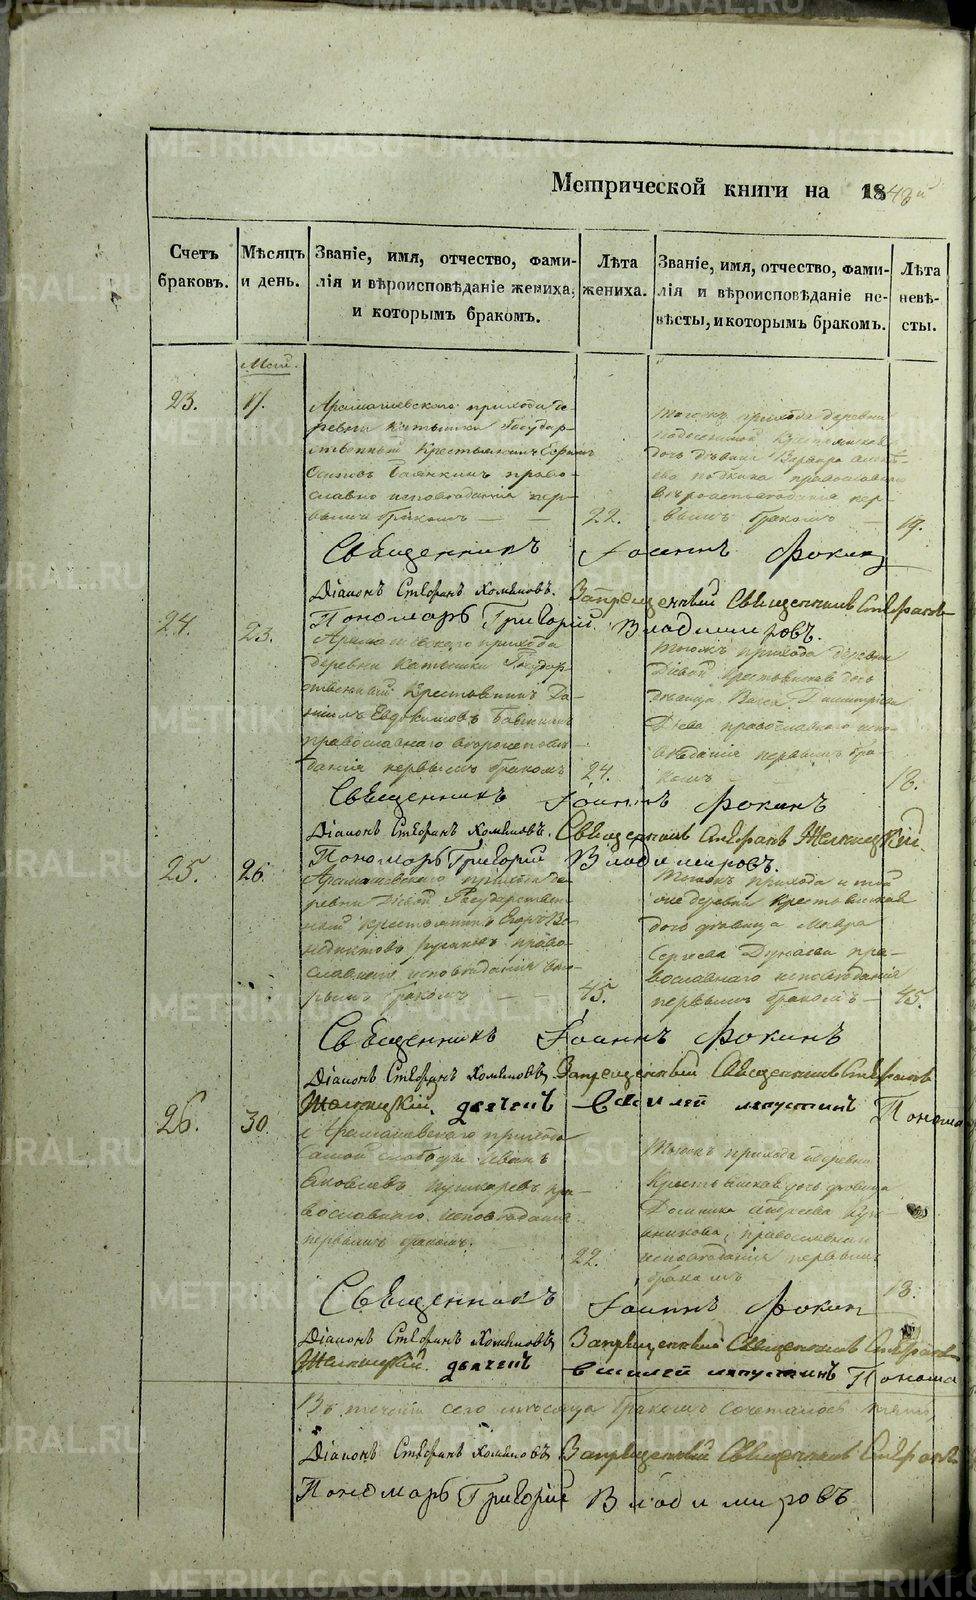 Метрической книги на 1843й
Счетъ браковъ.
Мѣсяцъ и день.
Званіе, имя, отчество, фами-
лія и вѣроисповѣданіе жениха,
и которымъ бракомъ.
Лѣта жениха.
Званіе, имя, отчество, фами-
лія и вѣроисповѣданіе не-
вѣсты, и которымъ бракомъ.
Лѣта невѣ-
сты.
Маій.
23.
17.
Арамашевскаго прихода де-
ревни Катышки Государ-
ственный крестьянинъ Ефимъ
Осиповъ православ-
исповѣданія пер-
вымъ бракомъ
22.
Тогожъ прихода деревни
дочь дѣвица Варвара
православнаго
вѣроисповѣданія пер-
вымъ бракомъ
19.
Священникъ Іоаннъ Фокин
Діаконъ Стефанъ Хомяковъ. Запрещенный Священникъ Стефанъ
Пономарь Григорій Владимировъ.
24.
23.
Арамашевскаго прихода
деревни Катышки Государ-
ственный крестьянинъ Да-
ніилъ Евдокимовъ
православнаго вѣроисповѣ-
данія первымъ бракомъ
24.
Тогожъ прихода деревни
Діевой крестьянская дочь
дѣвица Васса Димитріева
Діева православнаго испо-
вѣданія первымъ бра-
комъ
18.
Священникъ Іоаннъ Фокинъ
Діаконъ Стефанъ Хомяковъ. Священникъ Стефанъ
Пономарь Григорій Владимировъ.
25.
26.
Арамашевскаго прихода де-
ревни Діевой Государствен-
ный крестьянинъ Егоръ Ве-
недиктовъ право-
славнаго исповѣданія вто-
рымъ бракомъ
45.
Тогожъ прихода и той
же деревни крестьянская
дочь дѣвица Мавра
Сергѣева Дунаева пра-
вославнаго исповѣданія
первымъ бракомъ
45.
Священникъ Іоаннъ Фокинъ
Діаконъ Стефанъ Хомяковъ, Запрещенный Священникъ Стефанъ
дьячекъ Василей Лапустинъ Понома
26.
30.
Арамашевскаго прихода
самой слободы Иванъ
Яковлевъ Пушкаревъ пра-
вославнаго исповѣданія
первымъ бракомъ.
22.
Тогожъ прихода деревни
крестьянская дочь дѣвица
Домника Андреева
православнаго
исповѣданія первымъ
бракомъ
18.
Священникъ Іоаннъ Фокин
Діаконъ Стефанъ Хомяковъ, Запрещенный Священникъ Стефанъ
дьячекъ Василей Лапустинъ Понома
Въ теченіи сего мѣсяца бракомъ сочеталось
Діаконъ Стефанъ Хомяковъ, Запрещенный Священникъ Стефанъ
Пономарь Григорій Владимировъ
METRIKI.GASO-URAL.RU